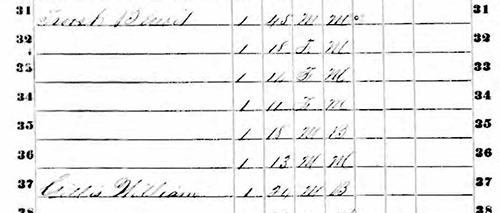 31 1 48 M M 31
32 1 18 F. M 32
33 1 14 F M 33
34 1 11 F M 34
35 1 18 M B 35
36 1 13 M M 36
37 Gillis William 1 24 M B 37
38 38